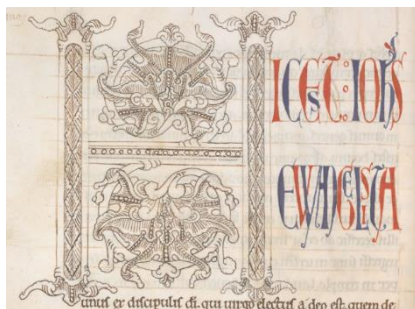 HIC EST: IOHS
EWANGELISTA
unus ex discipulis di. qui uirgo electus a deo est. quem de